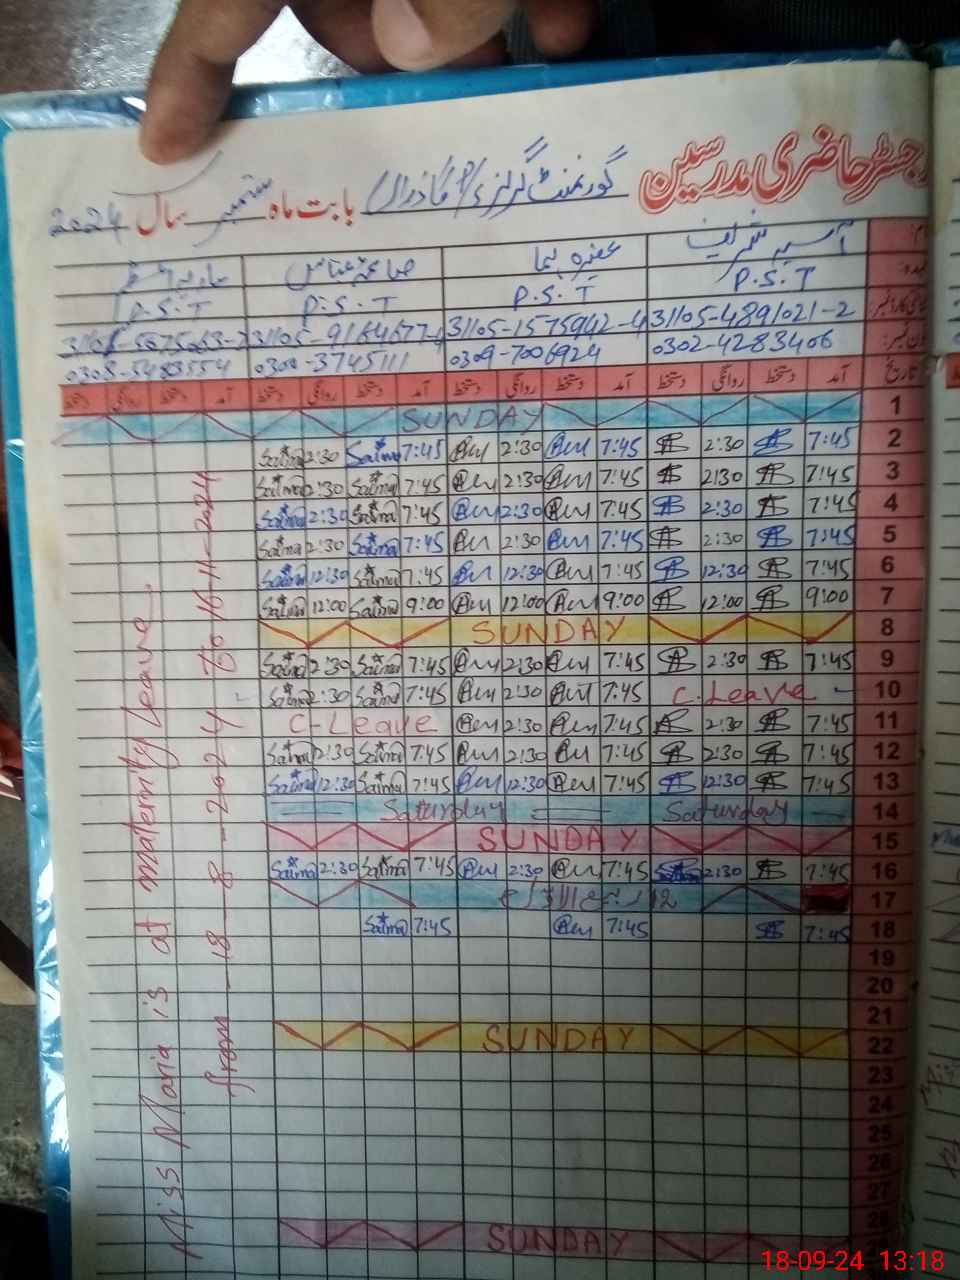 رجسٹر حاضری مدرسین گورنمنٹ گرلز بابت ماہ ستمبر سال 2024
آسیہ شریف
P.S.T P.S.T P.S.T P.S.T
31105-4891021-2 31105-1575942-4 31105-9164677-
0302-4283406 0309-7006924 0300-3745111 0308-5483554
تاریخ آمد دستخط روانگی دستخط آمد دستخط روانگی دستخط آمد دستخط روانگی دستخط آمد دستخط روانگی دستخط
1 SUNDAY
2 7:45 2:30 7:45 2:30 7:45 Salma 2:30 Salma
3 7:45 2:30 7:45 2:30 7:45 Salma 2:30 Salma
4 7:45 2:30 7:45 2:30 7:45 Salma 2:30 Salma
5 7:45 2:30 7:45 2:30 7:45 Salma 2:30 Salma
6 7:45 12:30 7:45 12:30 7:45 Salma 12:30 Salma
7 9:00 12:00 9:00 12:00 9:00 Salma 12:00 Salma
8 SUNDAY
9 7:45 2:30 7:45 2:30 7:45 Salma 2:30 Salma
10 C.Leave 7:45 2:30 7:45 Salma 2:30 Salma
11 7:45 2:30 7:45 2:30 C-Leave
12 7:45 2:30 7:45 2:30 7:45 Salma 2:30 Salma
13 7:45 12:30 7:45 12:30 7:45 Salma 12:30 Salma
14 Saturday Saturday
15 SUNDAY
16 7:45 2:30 7:45 2:30 7:45 Salma 2:30 Salma
17 12 ربیع الاول
18 7:45 7:45 7:45 Salma
19
20
21
22 SUNDAY
23
24
25
26
27
28
SUNDAY
Miss Maria is at maternity leave.
from 18-8-2024 to 16-11-2024
18-09-24 13:18